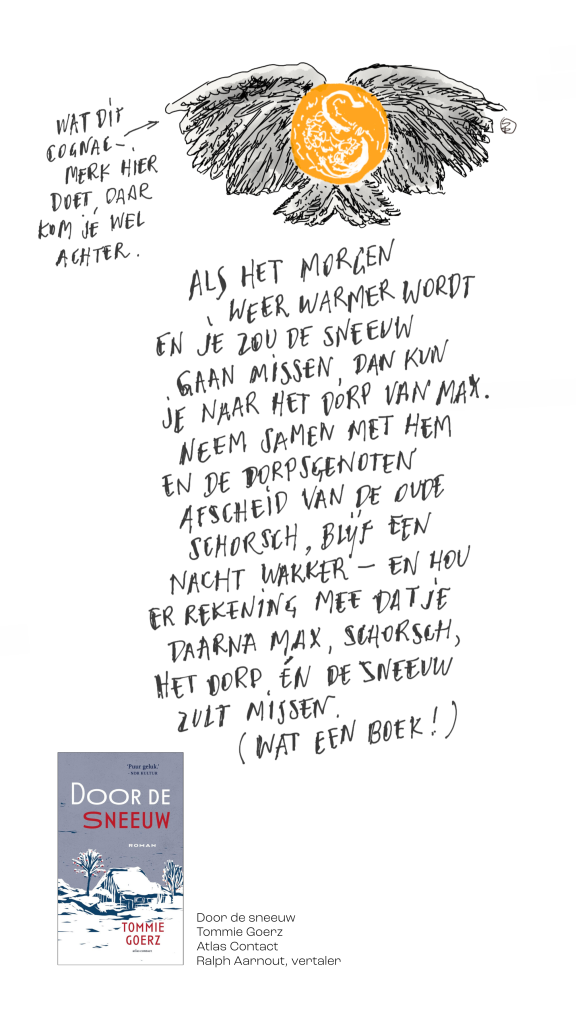 WAT DIT
COGNAC-
MERK HIER
DOET, DAAR
KOM JE WEL
ACHTER.
ALS HET MORGEN
WEER WARMER WORDT
EN JE ZOU DE SNEEUW
GAAN MISSEN, DAN KUN
JE NAAR HET DORP VAN MAX.
NEEM SAMEN MET HEM
EN DE DORPSGENOTEN
AFSCHEID VAN DE OUDE
SCHORSCH, BLIJF EEN
NACHT WAKKER — EN HOU
ER REKENING MEE DAT JE
DAARNA MAX, SCHORSCH,
HET DORP ÉN DE SNEEUW
ZULT MISSEN.
(WAT EEN BOEK!)
'Puur geluk.'
- DER KULTUR
DOOR DE
SNEEUW
ROMAN
TOMMIE
GOERZ
atlas contact
Door de sneeuw
Tommie Goerz
Atlas Contact
Ralph Aarnout, vertaler